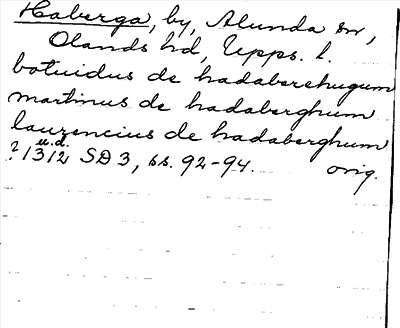 Haberga, by, Alunda sn,
Olands hd, Upps. l.
botuidus de hadaberehugum
martinus de hadaberghum
laurencius de hadaberghum
u.d.
? 1312 SD 3, ss. 92-94. orig.